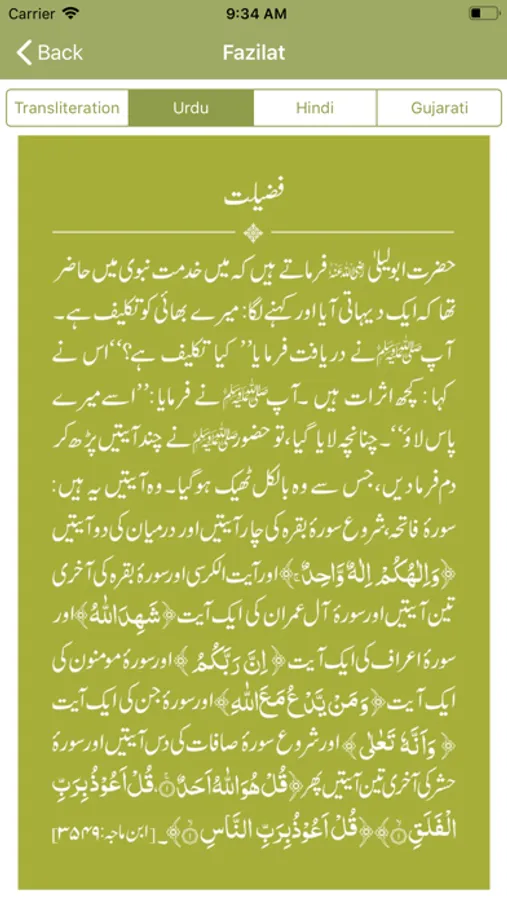 Carrier 9:34 AM
Back Fazilat
Transliteration Urdu Hindi Gujarati
فضیلت
حضرت ابولیلیٰ رضی اللہ عنہ فرماتے ہیں کہ میں خدمت نبوی میں حاضر
تھا کہ ایک دیہاتی آیا اور کہنے لگا: میرے بھائی کو تکلیف ہے۔
آپ ﷺ نے دریافت فرمایا ’’کیا تکلیف ہے؟‘‘ اس نے
کہا: کچھ اثرات ہیں۔ آپ ﷺ نے فرمایا: ’’اسے میرے
پاس لاؤ‘‘۔ چنانچہ لایا گیا، تو حضور ﷺ نے چند آیتیں پڑھ کر
دم فرما دیں، جس سے وہ بالکل ٹھیک ہوگیا۔ وہ آیتیں یہ ہیں:
سورۂ فاتحہ، شروع سورۂ بقرہ کی چار آیتیں اور درمیان کی دو آیتیں
﴿وَاِلٰهُكُمْ اِلٰهٌ وَّاحِدٌ ۚ﴾ اور آیت الکرسی اور سورۂ بقرہ کی آخری
تین آیتیں اور سورۂ آل عمران کی ایک آیت ﴿شَهِدَ اللّٰهُ﴾ اور
سورۂ اعراف کی ایک آیت ﴿اِنَّ رَبَّكُمْ﴾ اور سورۂ مومنون کی
ایک آیت ﴿وَمَنْ يَّدْعُ مَعَ اللّٰهِ﴾ اور سورۂ جن کی ایک آیت
﴿وَاَنَّهٗ تَعٰلٰى﴾ اور شروع سورۂ صافات کی دس آیتیں اور سورۂ
حشر کی آخری تین آیتیں پھر ﴿قُلْ هُوَ اللّٰهُ اَحَدٌ ۝۱، قُلْ اَعُوْذُ بِرَبِّ
الْفَلَقِ ۝۱﴾ ﴿قُلْ اَعُوْذُ بِرَبِّ النَّاسِ ۝۱﴾۔ [ابن ماجہ: ۳۵۴۹]